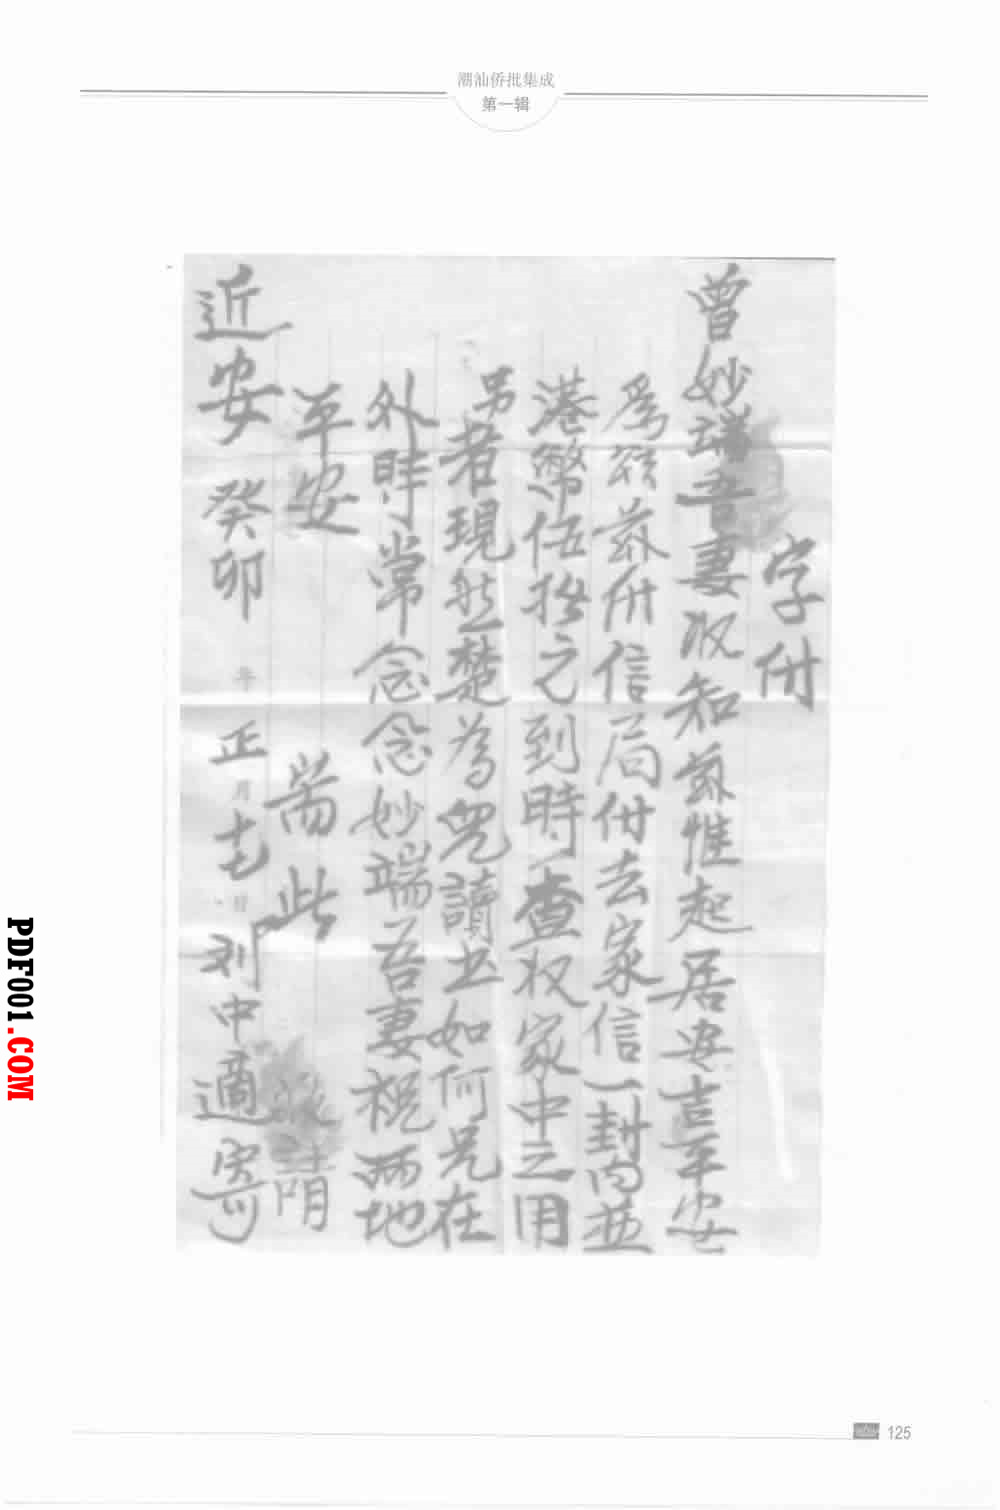 潮汕侨批集成
第一辑
字付
曾妙端吾妻收知兹惟起居安吉平安
為頌兹付信局付去家信一封内並
港幣伍拾元到時查收家中之用
另者現然楚為兒讀书如何兄在
外時常念念妙端吾妻祝兩地
平安 耑此 請
近安 癸卯年正月十七日 刘中適寄
125
PDF001.COM